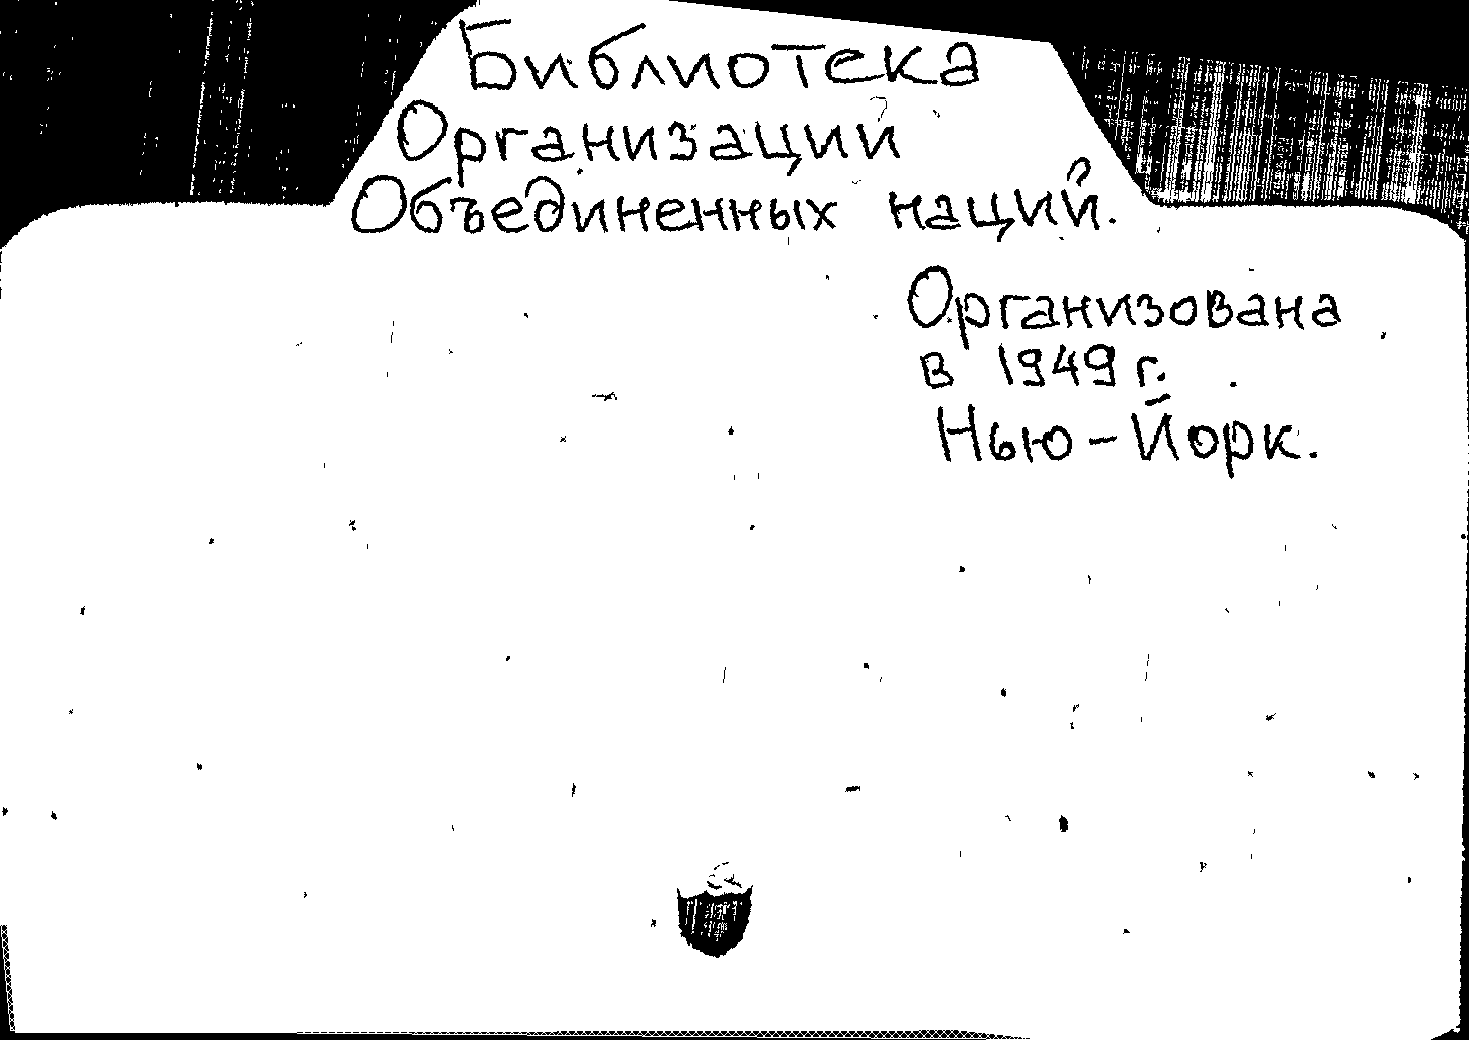 Библиотека
Организации
Объединенных наций.
Организована
в 1949 г.
Нью-Йорк.